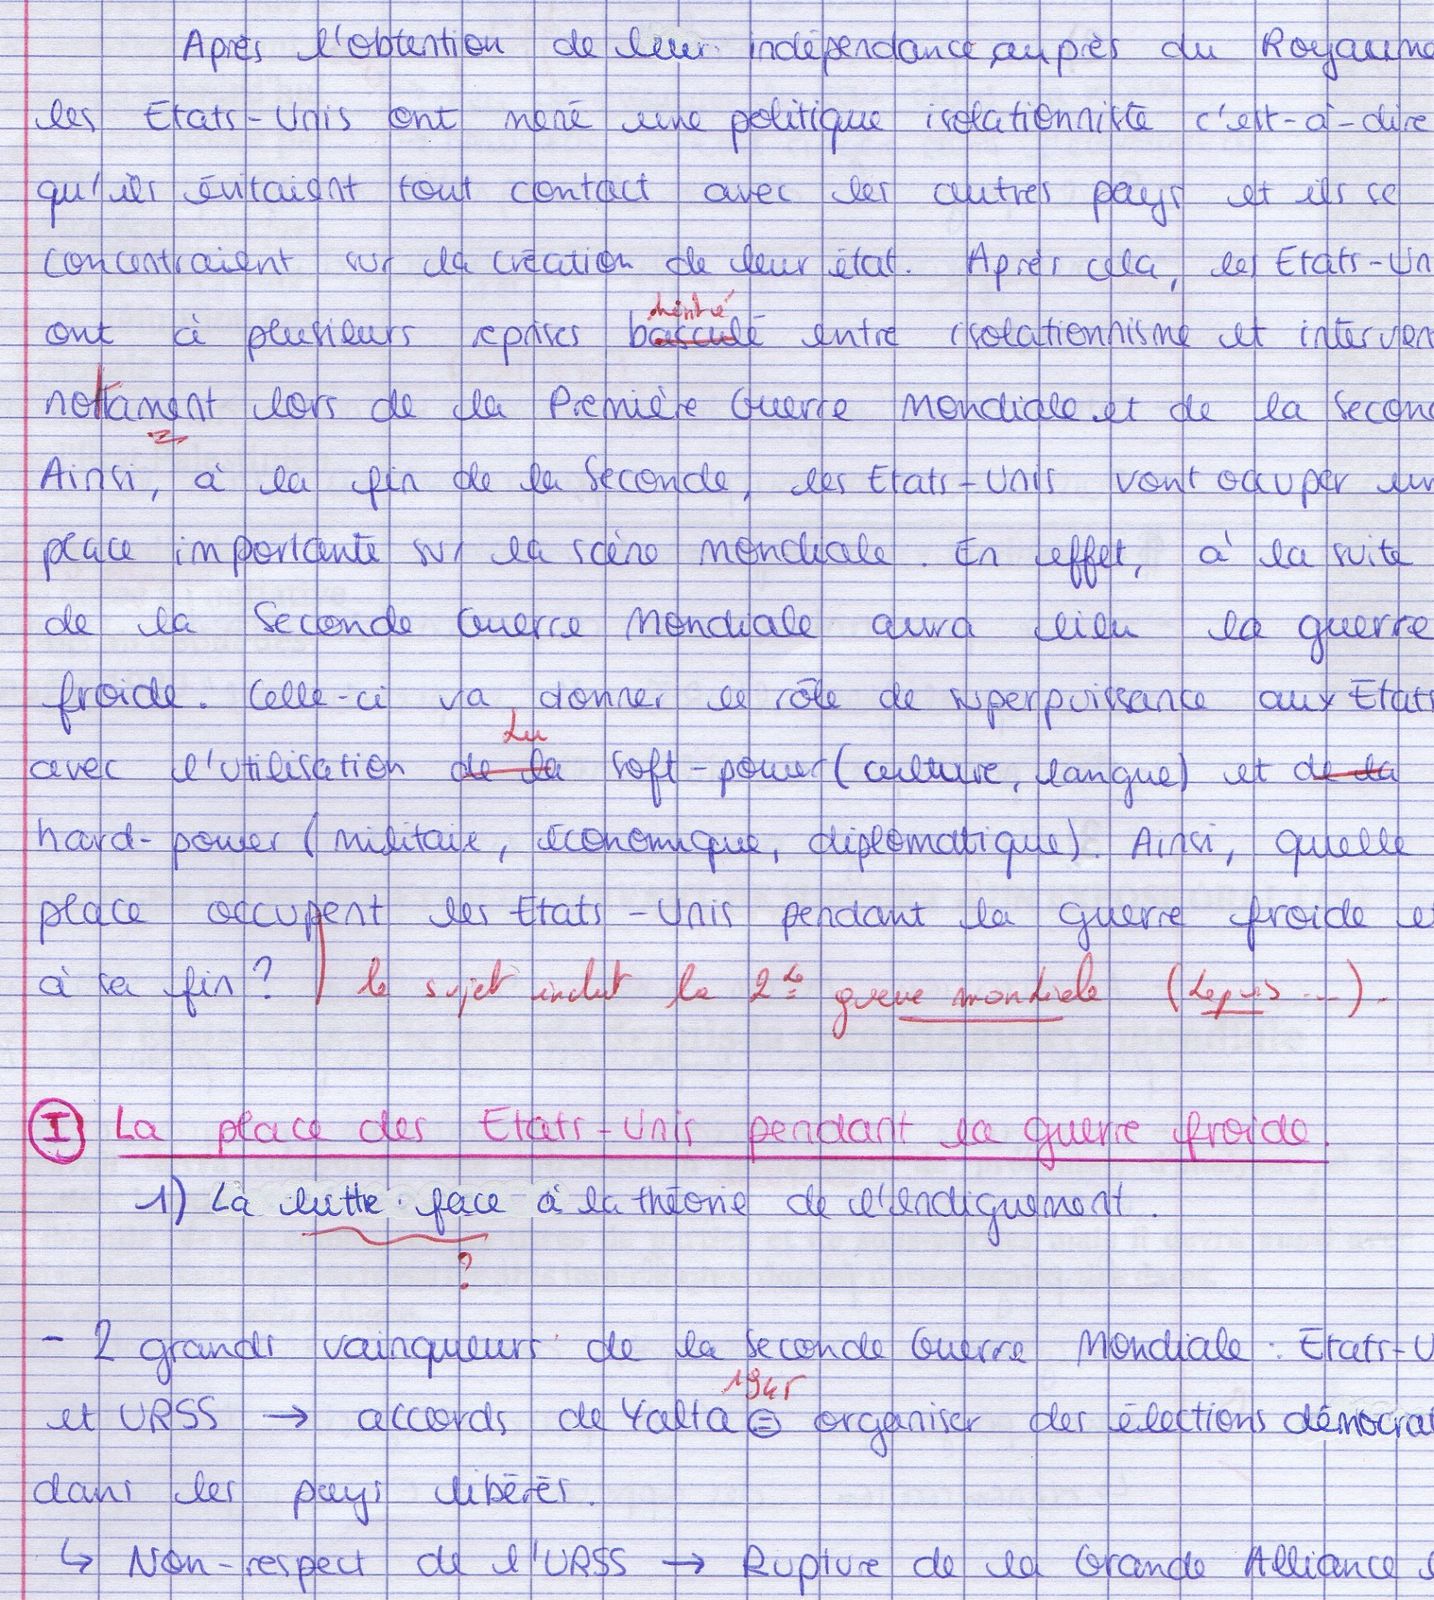 Après l'obtention de leur indépendance auprès du Royaume
les Etats-Unis ont mené une politique isolationniste c'est-à-dire
qu'ils évitaient tout contact avec les autres pays et ils se
concentraient sur la création de leur état. Après cela, les Etats-Un
hésité
ont à plusieurs reprises basculé entre isolationnisme et interven
nottament lors de la Première Guerre Mondiale et de la Second
Ainsi, à la fin de la Seconde, les Etats-Unis vont occuper un
place importante sur la scène mondiale. En effet, à la suite
de la Seconde Guerre Mondiale aura lieu la guerre
froide. Celle-ci va donner le rôle de superpuissance aux Etats
du
avec l'utilisation de la soft-power (culture, langue) et de la
hard-power (militaire, économique, diplomatique). Ainsi, quelle
place occupent les Etats-Unis pendant la guerre froide et
à sa fin ? le sujet inclut la 2de guerre mondiale (depuis ...).
I La place des Etats-Unis pendant la guerre froide.
1) La lutte face à la théorie de l'endiguement.
?
- 2 grands vainqueurs de la Seconde Guerre Mondiale : Etats-U
1945
et URSS → accords de Yalta = organiser des élections démocrat
dans les pays libérés.
↳ Non-respect de l'URSS → Rupture de la Grande Alliance